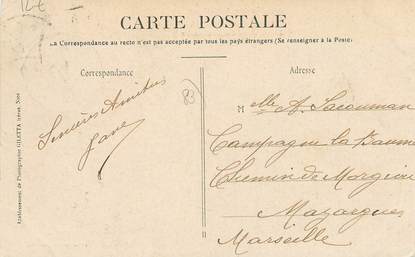 12€
CARTE POSTALE
La Correspondance au recto n'est pas acceptée par tous les pays étrangers (Se renseigner à la Poste)
Correspondance
Adresse
83
Sincères Amitiés
Melle A. Sacouman
Campagne la Baume
Chemin de Morgiou
Mazargues
Marseille
Etablissement de Photographie GILETTA frères, Nice